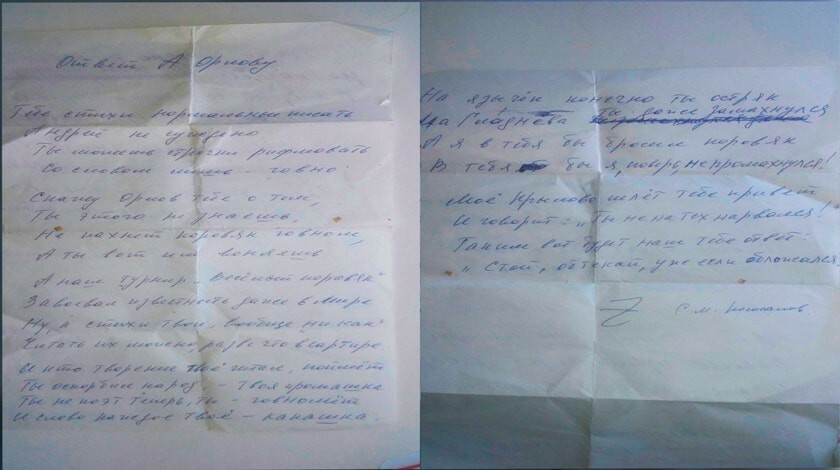 Ответ А Орлову
Тебе стихи нормальные писать
Андрей не суждено
Ты можешь строчки рифмовать
Со словом лишь - говно.
Скажу Орлов тебе о том,
Ты этого не знаешь,
Не пахнет коровяк говном,
А ты вот им воняешь
А наш турнир „Весёлый коровяк"
Завоевал известность даже в мире
Ну, а стихи твои, вообще никак
Читать их можно, разве что в сортире.
И кто творение твоё читает, поймёт
Ты оскорбил народ, - твоя промашка
Ты не поэт теперь, ты - говномёт
И слово каждое твоё - какашка.
На язычёк конечно ты остряк
ты даже замахнулся
На Гладнева
А я в тебя бы бросил коровяк
В тебя бы я, поверь, не промахнулся!
Моё Крылово шлёт тебе привет
И говорит: „Ты не на тех нарвался!"
Таким вот будет наш тебе ответ:
„Стой, обтекай, уже если обложался,
С.М.